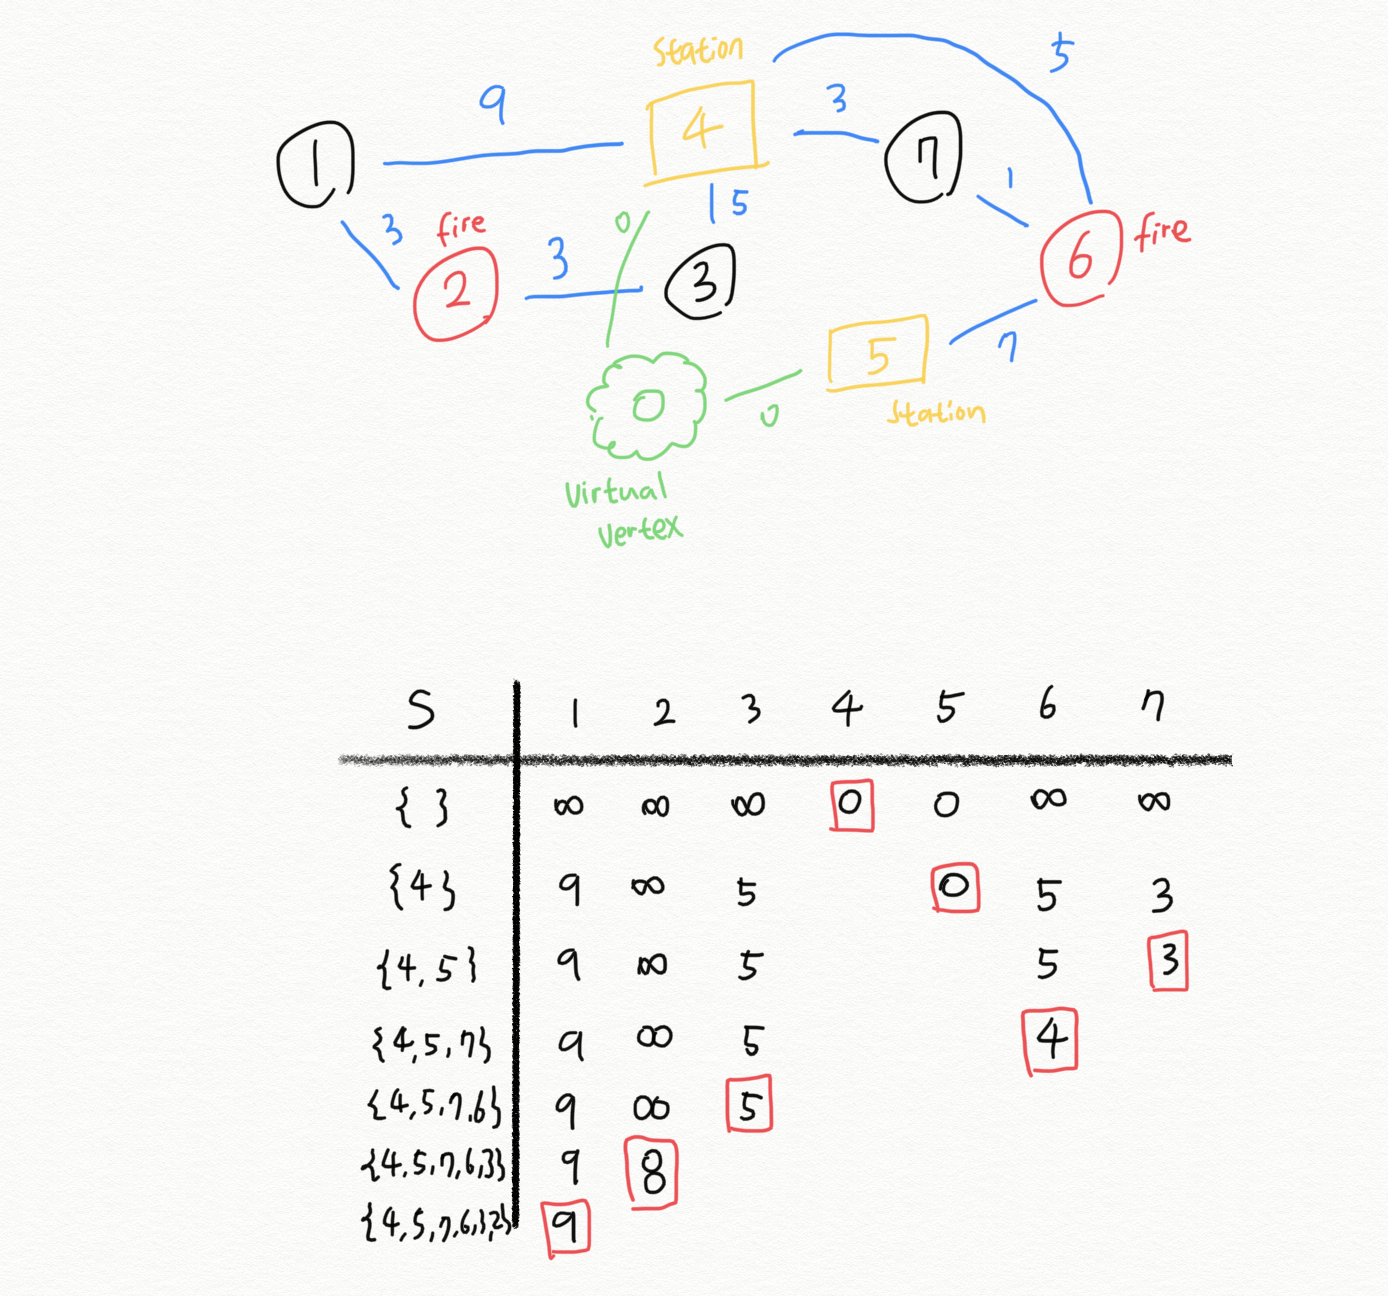 Station
5
9
4
3
1
7
1
3
fire
0
5
fire
2
3
3
6
5
7
0
0
Station
Virtual
vertex
S 1 2 3 4 5 6 7
{ } ∞ ∞ ∞ 0 0 ∞ ∞
{4} 9 ∞ 5 0 5 3
{4,5} 9 ∞ 5 5 3
{4,5,7} 9 ∞ 5 4
{4,5,7,6} 9 ∞ 5
{4,5,7,6,3} 9 8
{4,5,7,6,3,2} 9